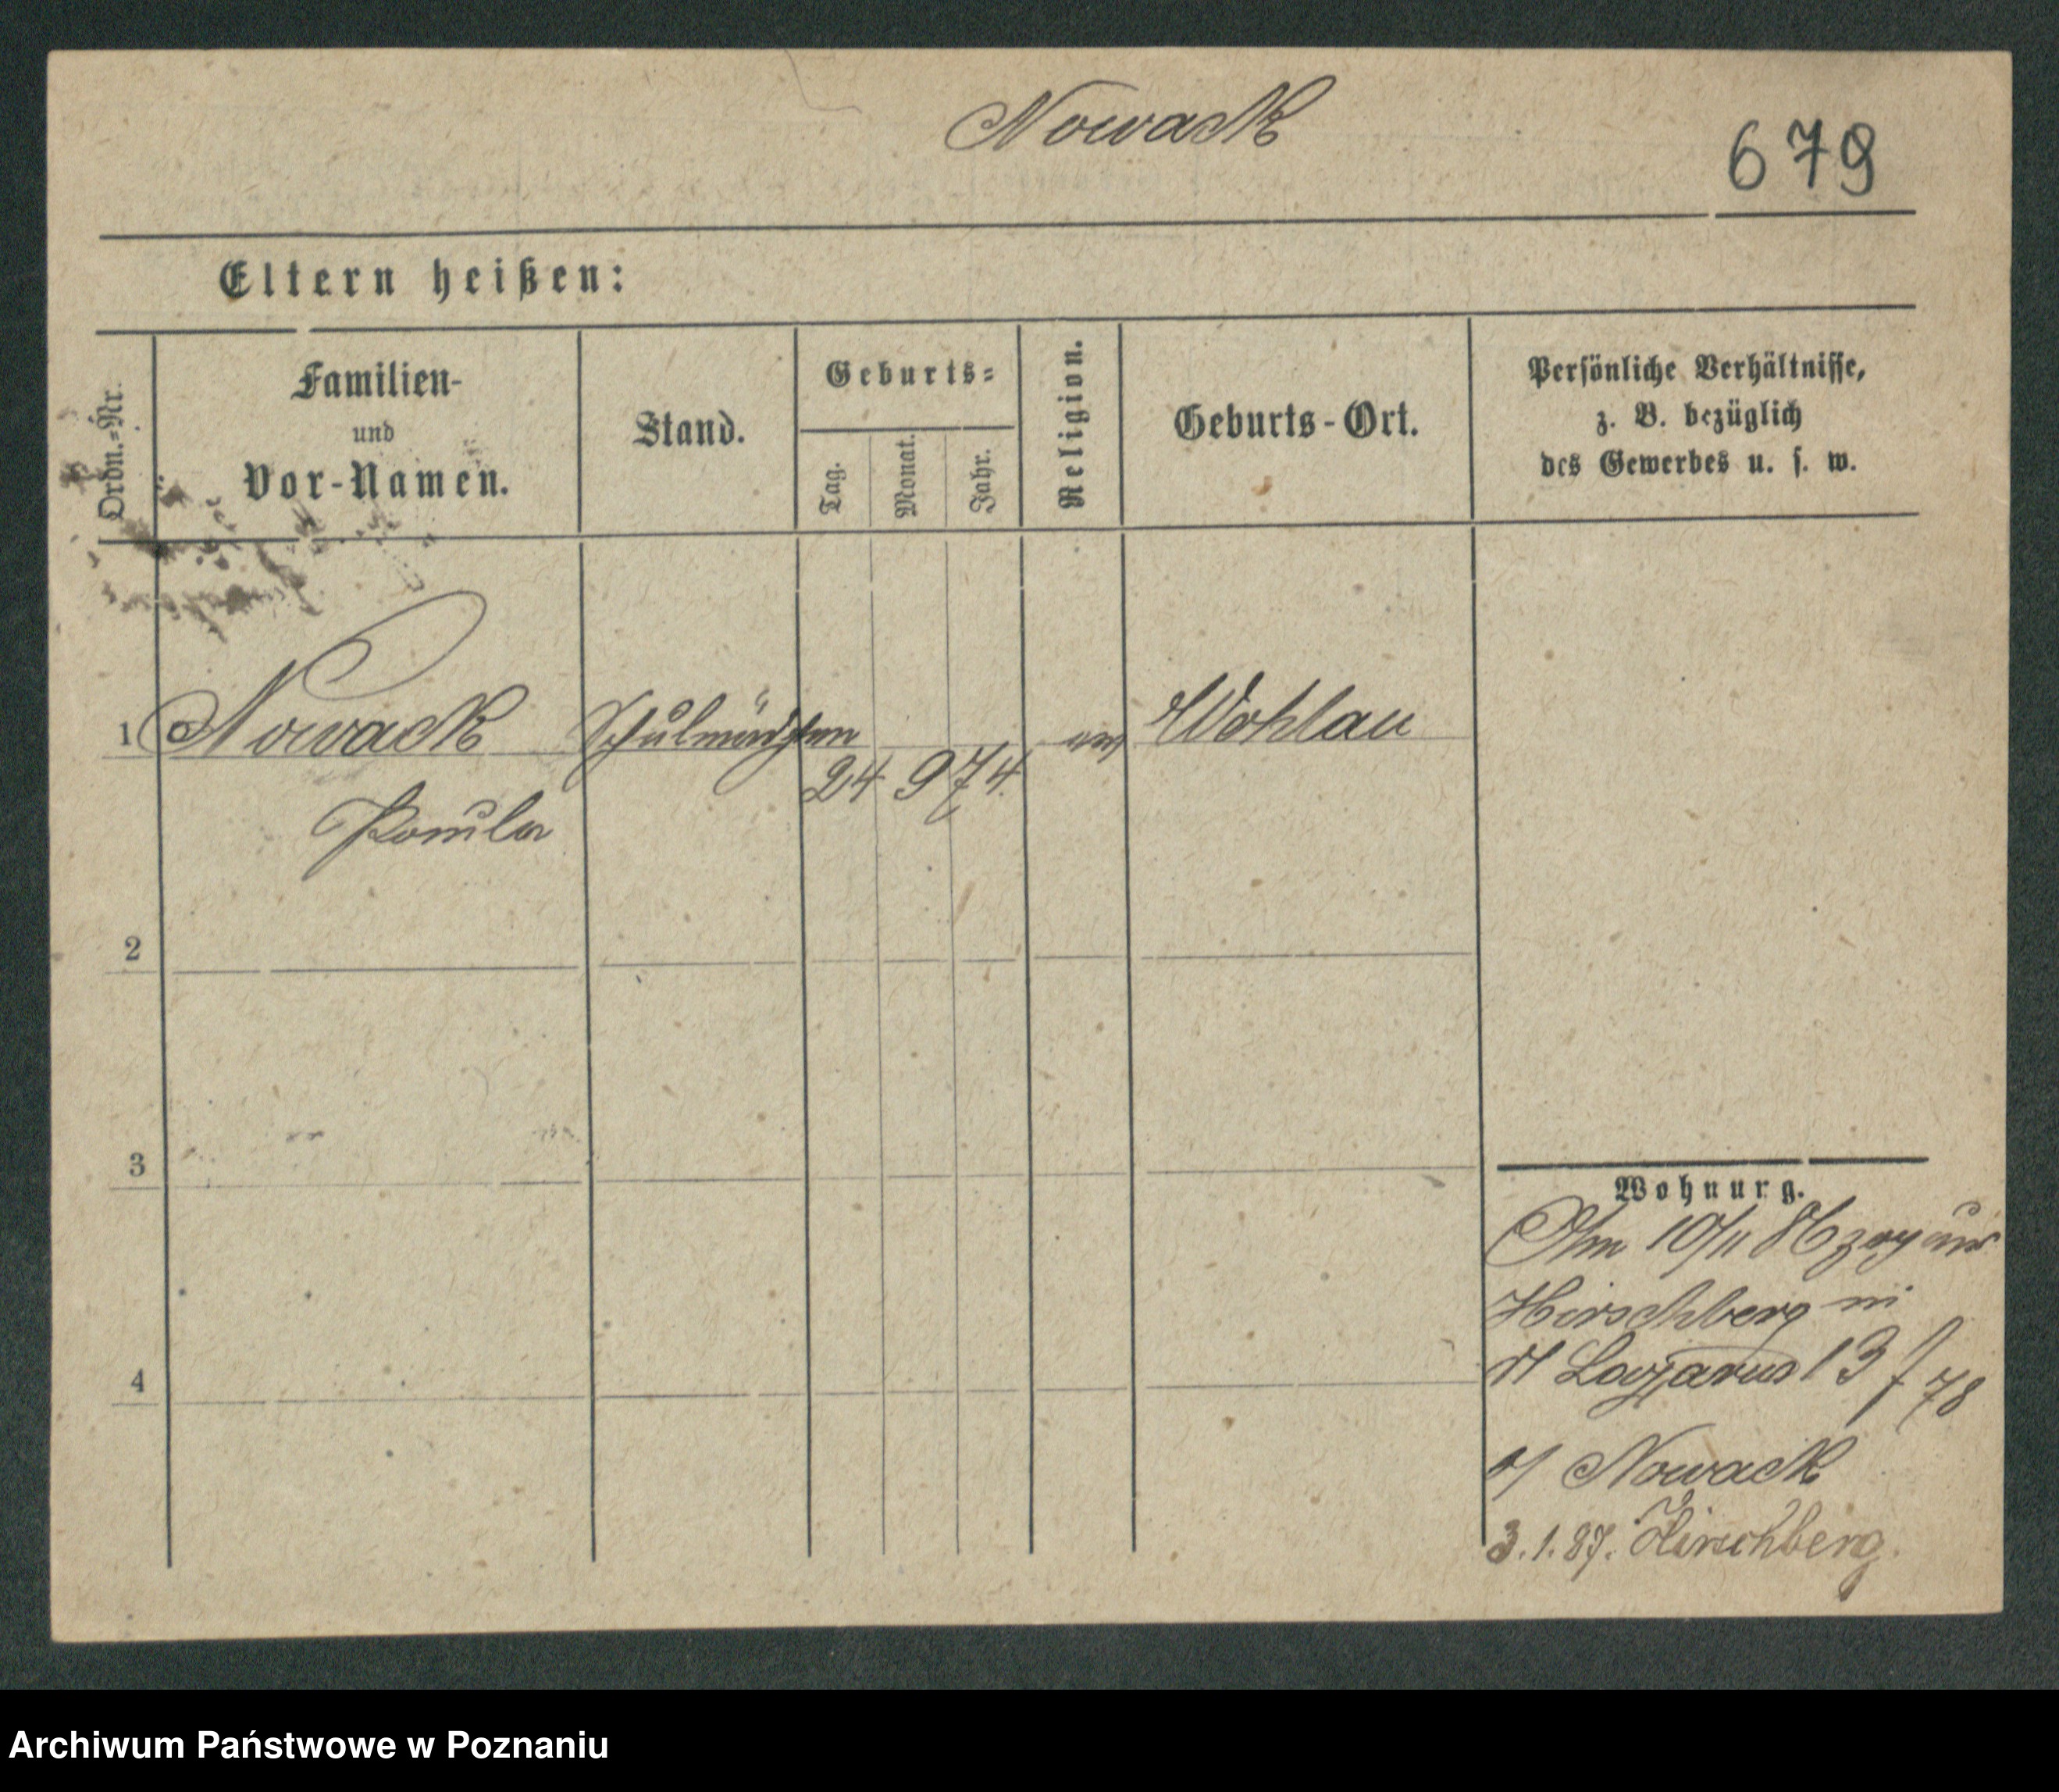 Nowack
679
Eltern heißen:
Ordn.-Nr.
Familien-
und
Vor-Namen.
Stand.
Geburts-
Tag.
Monat.
Jahr.
Religion.
Geburts-Ort.
Persönliche Verhältnisse,
z. B. bezüglich
des Gewerbes u. s. w.
1 Nowack Schulmädchen 24 9 74. ev Wohlau
Paula
2
3
4
Wohnung.
Am 10/11 86 zog aus
Hirschberg
St Lazarus 13 / 78
b/ Nowack
3.1.87. Hirschberg.
Archiwum Państwowe w Poznaniu